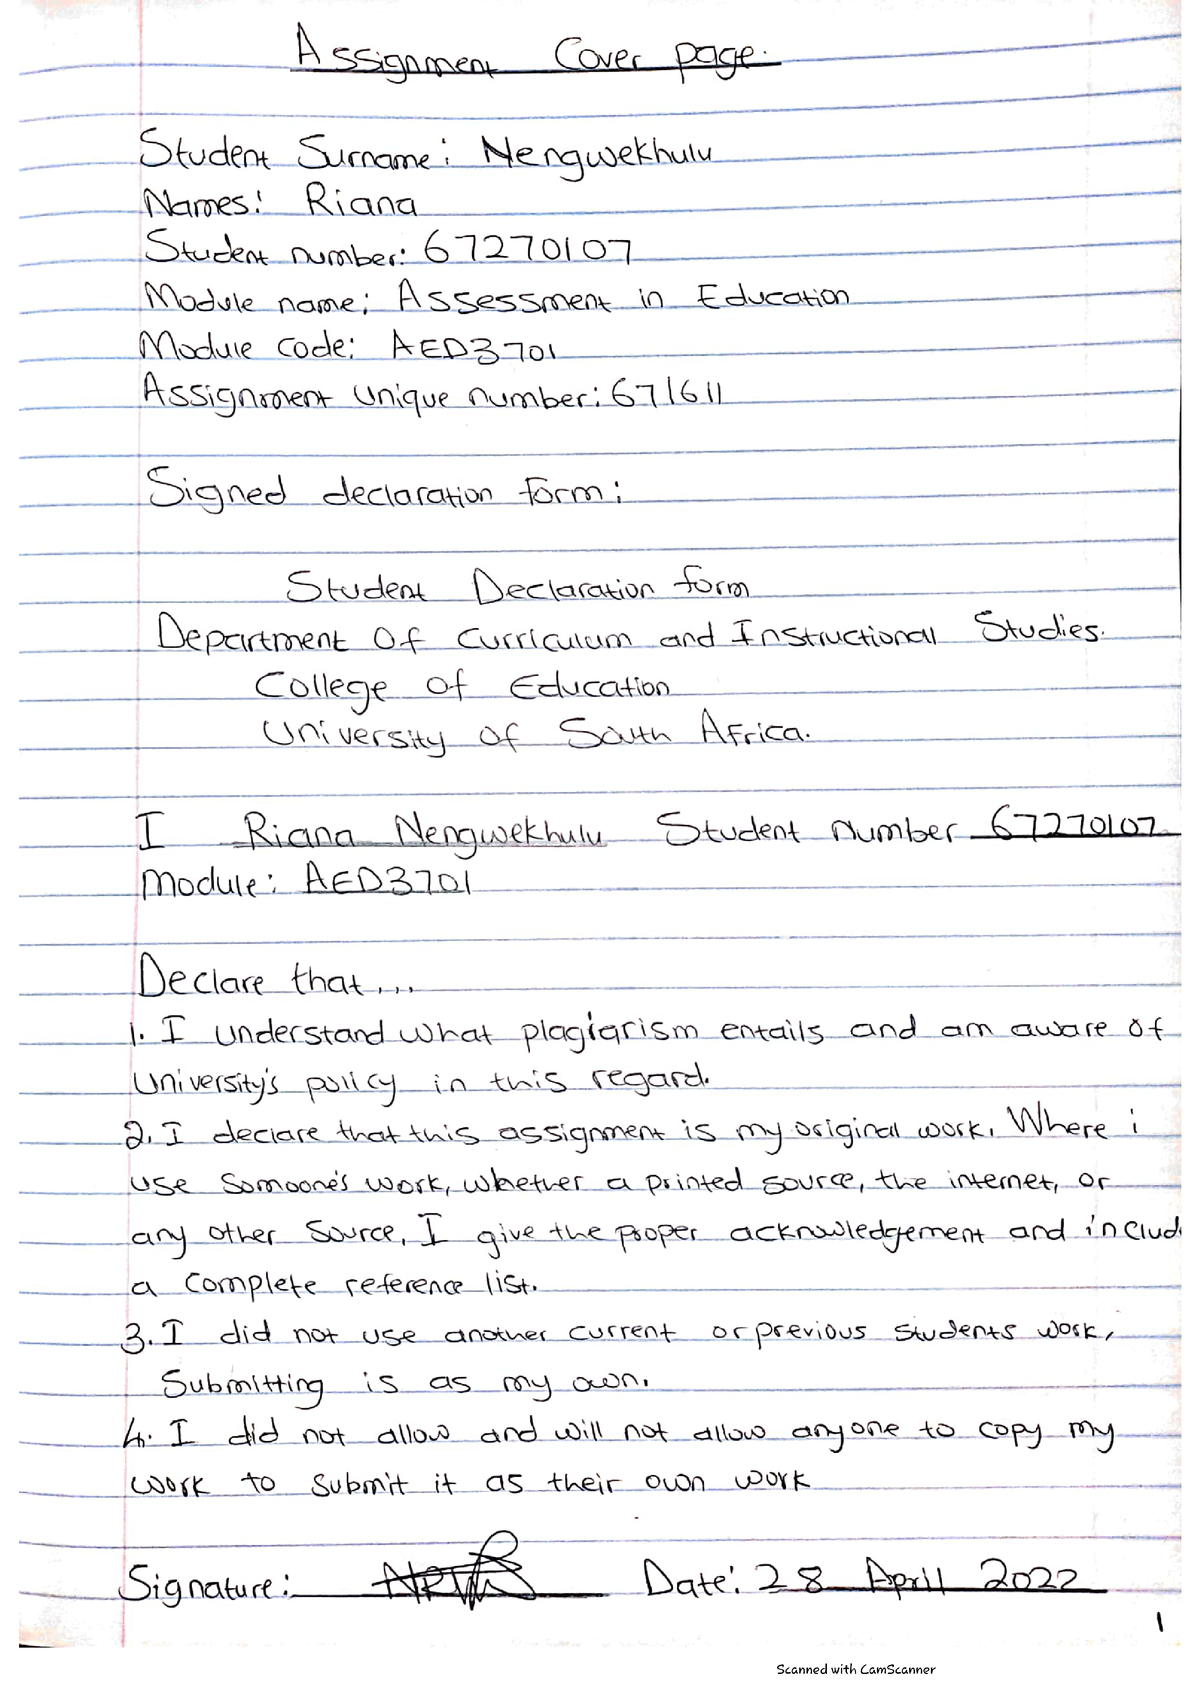 Assignment Cover page.
Student Surname: Nengwekhulu
Names: Riana
Student number: 67270107
Module name: Assessment in Education
Module code: AED3701
Assignment unique number: 671611
Signed declaration form:
Student Declaration form
Department Of Curriculum and Instructional Studies.
College of Education
University of South Africa.
I Riana Nengwekhulu Student number 67270107
Module: AED3701
Declare that...
1. I understand what plagiarism entails and am aware of
University's policy in this regard.
2. I declare that this assignment is my original work. Where i
use Somoone's work, whether a printed source, the internet, or
any other source, I give the proper acknowledgement and includ
a complete reference list.
3. I did not use another current or previous students work,
Submitting is as my own.
4. I did not allow and will not allow anyone to copy my
work to submit it as their own work
Signature: Date: 28 April 2022
1
Scanned with CamScanner